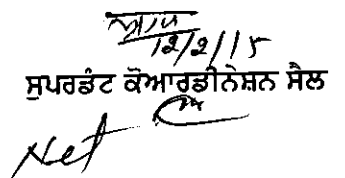 12/2/15
ਸੁਪਰਡੰਟ ਕੋਆਰਡੀਨੇਸ਼ਨ ਸੈਲ
Net